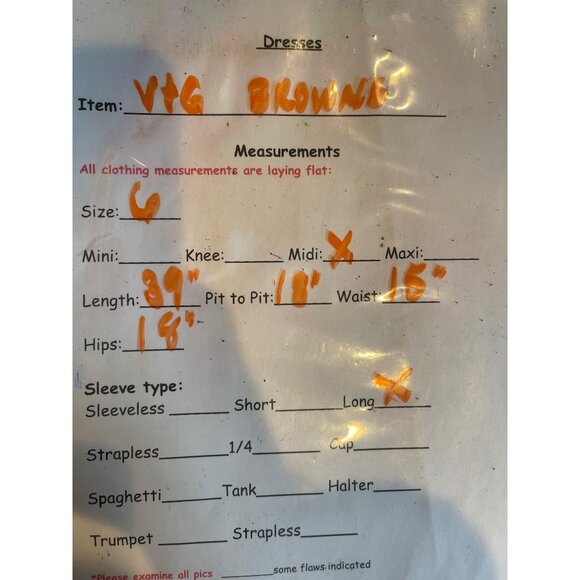 Dresses
Item: V+G BROWNE
Measurements
All clothing measurements are laying flat:
Size: 6
Mini:______ Knee:______ Midi: X Maxi:______
Length: 39" Pit to Pit: 18" Waist: 15"
Hips: 18"
Sleeve type:
Sleeveless ______ Short______ Long X
Strapless______ 1/4______ Cap______
Spaghetti______ Tank______ Halter______
Trumpet ______ Strapless______
*Please examine all pics ______some flaws indicated